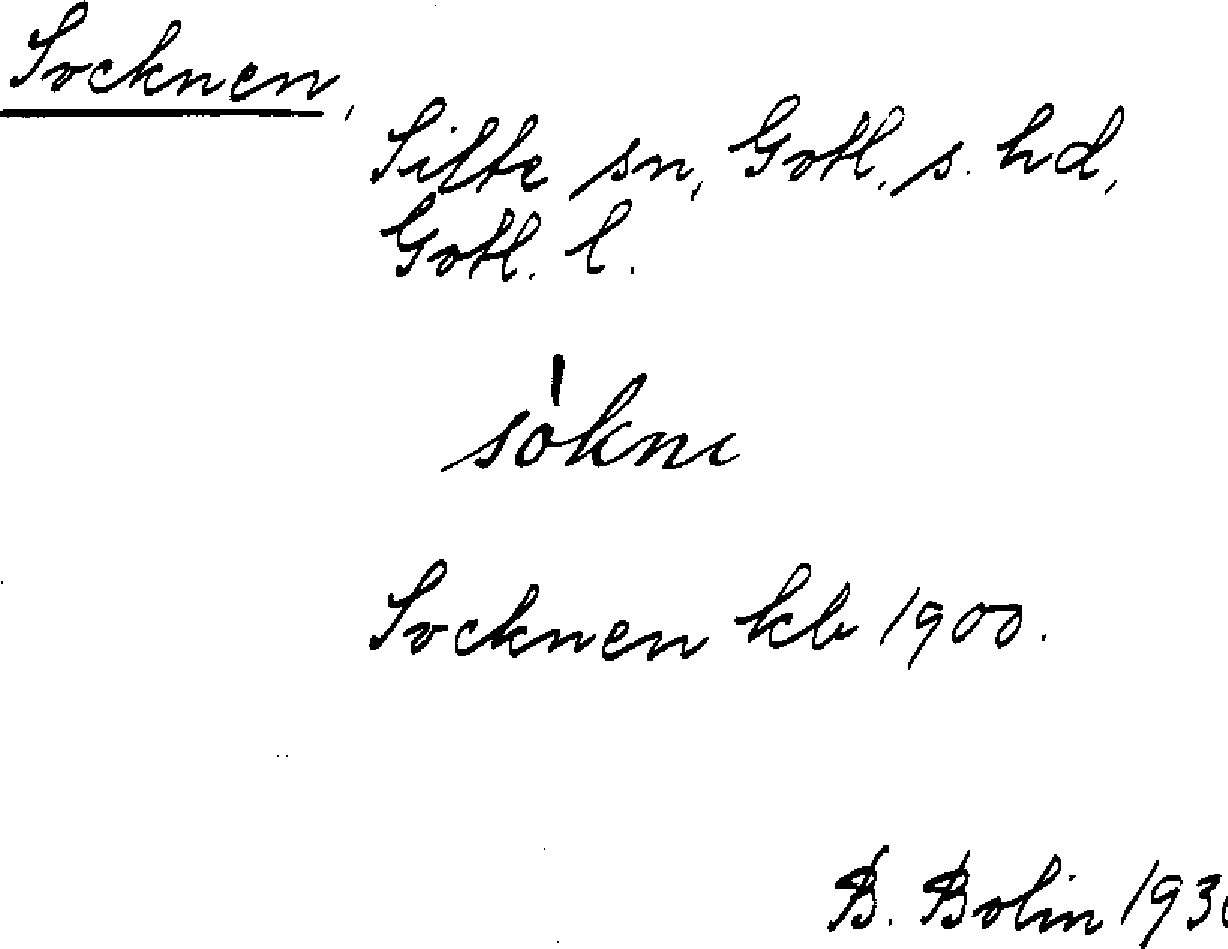 Socknen,
Silte sn, Gotl. s. hd,
Gotl. l.
sókne
Socknen kb 1900.
B. Bolin